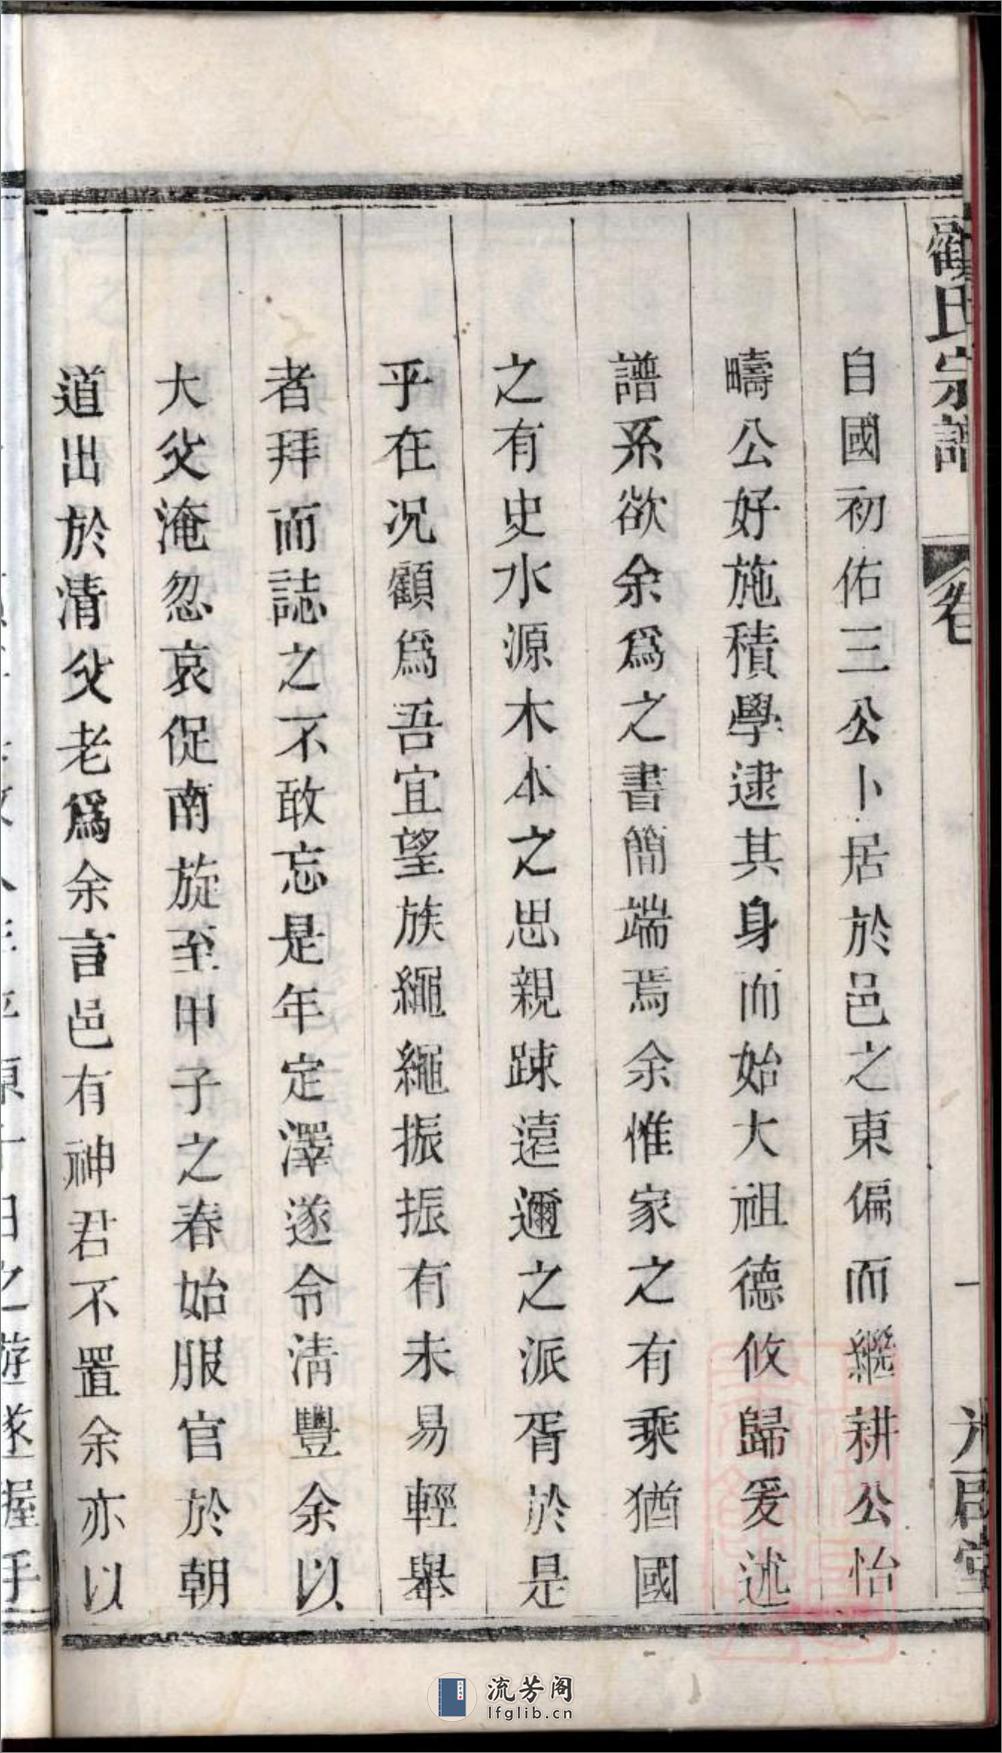 顧氏宗譜
卷
一
光啟堂
自國初佑三公卜居於邑之東偏而繼耕公怡
疇公好施積學逮其身而始大祖德攸歸爰述
譜系欲余為之書簡端焉余惟家之有乘猶國
之有史水源木本之思親踈遠邇之派胥於是
乎在况顧為吾宜望族繩繩振振有未易輕舉
者拜而誌之不敢忘是年定澤遂令清豐余以
大父淹忽哀促南旋至甲子之春始服官於朝
道出於清父老為余言邑有神君不置余亦以
東十日之遊遂握手
流芳阁
lfglib.cn